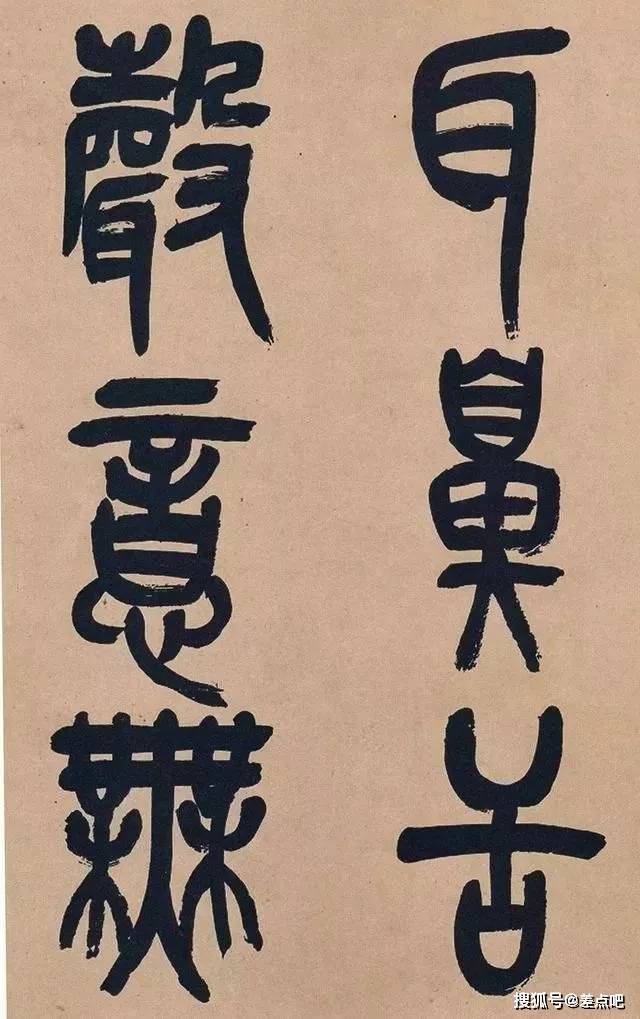 耳鼻舌
聲意無
搜狐号@差点吧